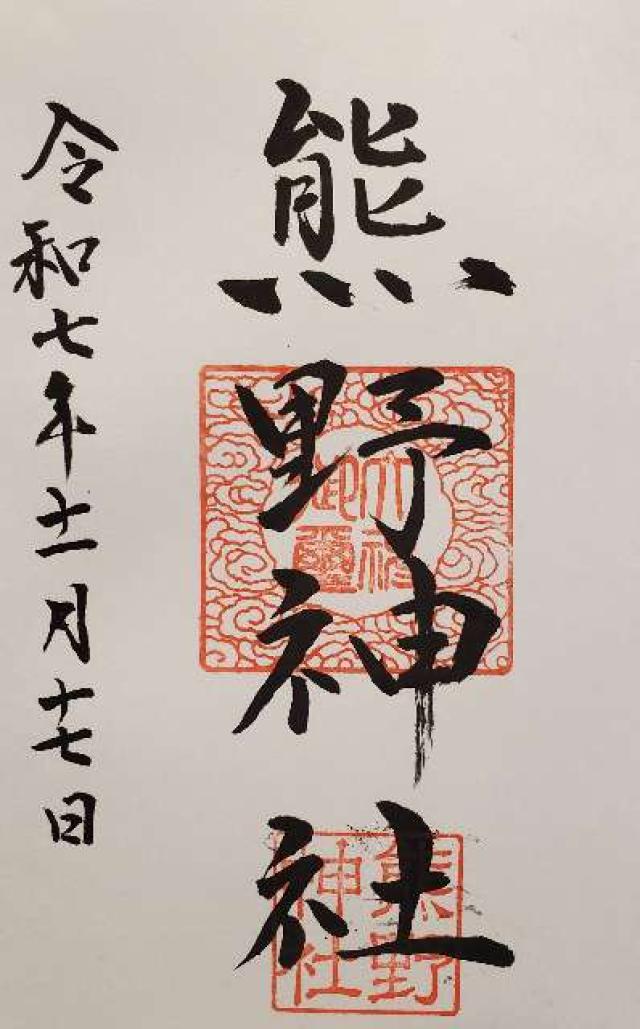 熊野神社
令和七年十一月十七日
大神御璽
熊野神社